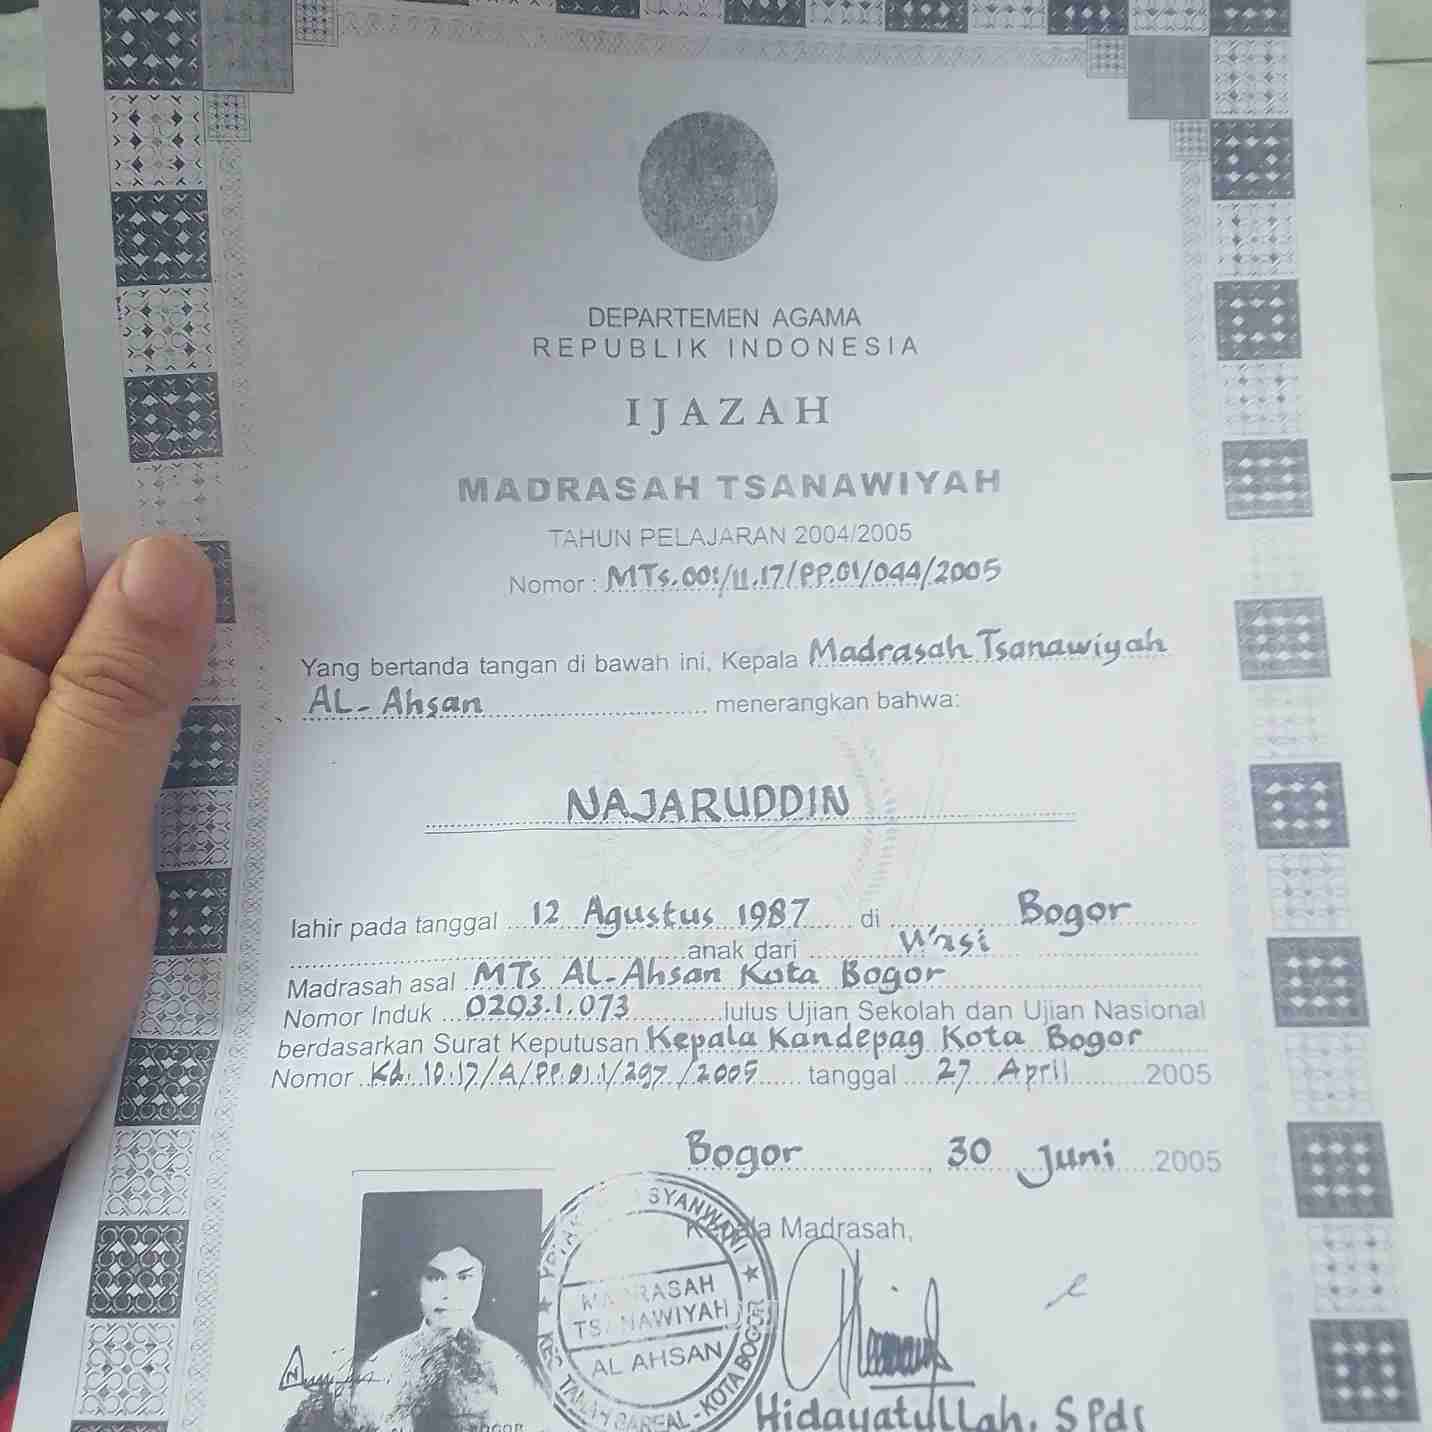 DEPARTEMEN AGAMA
REPUBLIK INDONESIA
IJAZAH
MADRASAH TSANAWIYAH
TAHUN PELAJARAN 2004/2005
Nomor : MTs.001/11.17/PP.01/044/2005
Yang bertanda tangan di bawah ini, Kepala Madrasah Tsanawiyah
AL-Ahsan menerangkan bahwa:
NAJARUDDIN
lahir pada tanggal 12 Agustus 1987 di Bogor
anak dari Wasi
Madrasah asal MTs AL-Ahsan Kota Bogor
Nomor Induk 0203.1.073 lulus Ujian Sekolah dan Ujian Nasional
berdasarkan Surat Keputusan Kepala Kandepag Kota Bogor
Nomor Kd.10.17/4/PP.01.1/297/2005 tanggal 27 April 2005
Bogor, 30 Juni 2005
Kepala Madrasah,
MADRASAH
TSANAWIYAH
AL AHSAN
KOTA BOGOR
Hidayatullah, SPdI